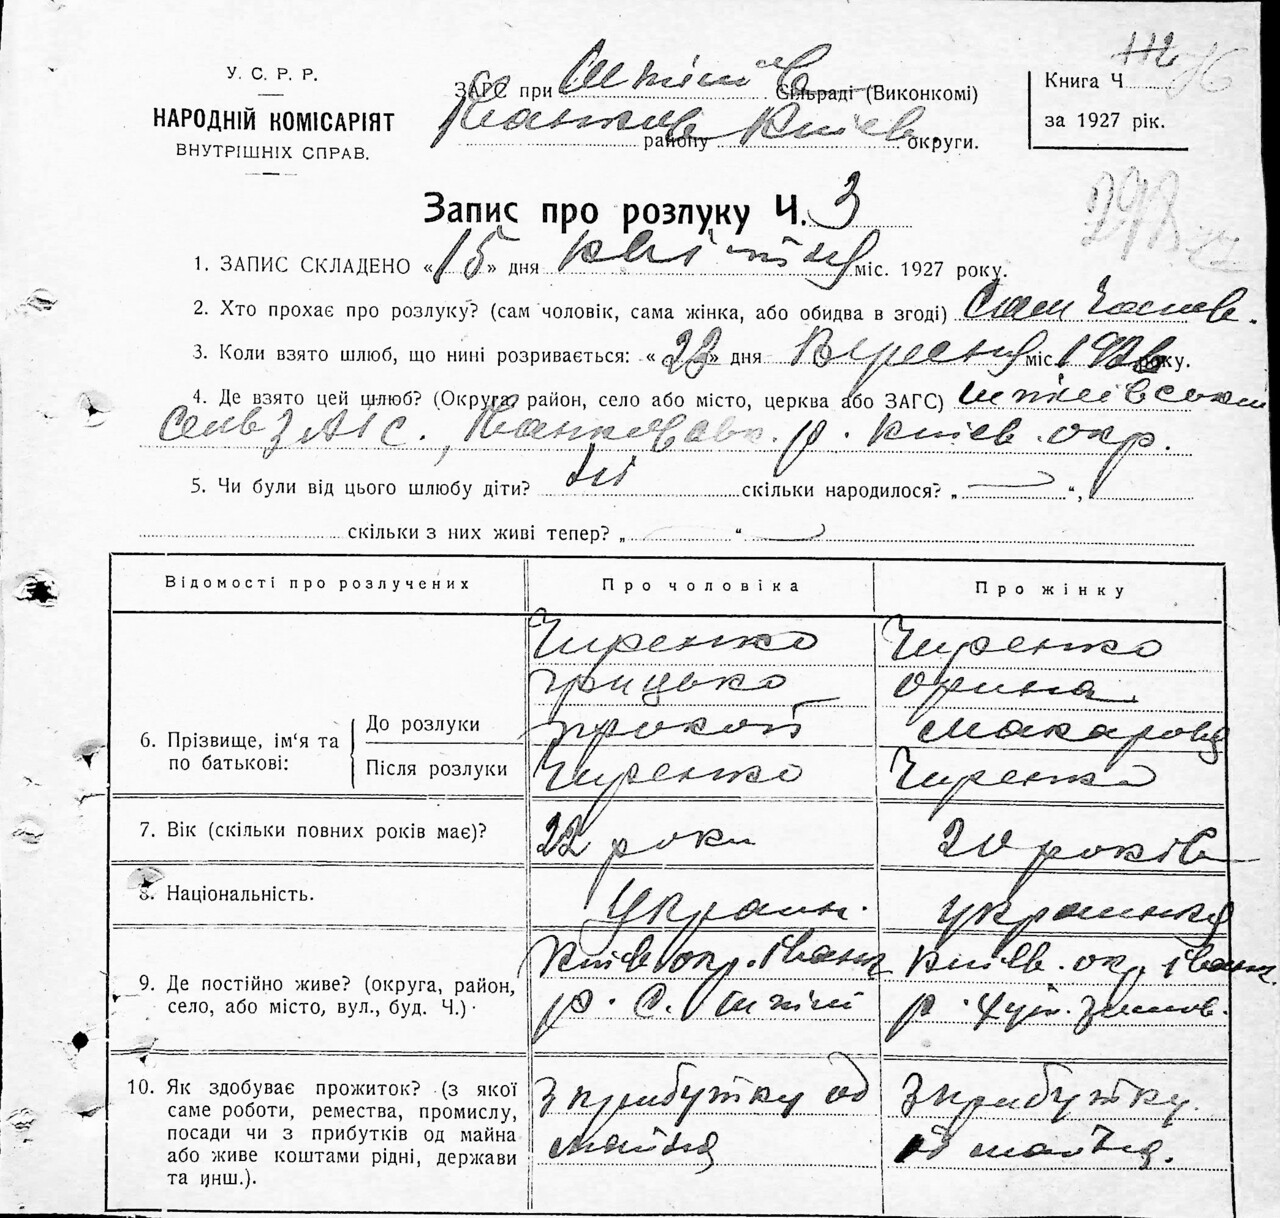 У. С. Р. Р.
НАРОДНІЙ КОМІСАРІЯТ
ВНУТРІШНІХ СПРАВ.
ЗАГС при Сільраді (Виконкомі)
району Київ округи.
Книга Ч
за 1927 рік.
Запис про розлуку Ч. 3
1. ЗАПИС СКЛАДЕНО «15» дня квітня міс. 1927 року.
2. Хто прохає про розлуку? (сам чоловік, сама жінка, або обидва в згоді) Сам чолов.
3. Коли взято шлюб, що нині розривається: «22» дня Вересня міс. 1926 року.
4. Де взято цей шлюб? (Округа, район, село або місто, церква або ЗАГС)
ЗАГС. р. Київ. окр.
5. Чи були від цього шлюбу діти? Ні скільки народилося? „ — “,
скільки з них живі тепер? „ — “
Відомості про розлучених Про чоловіка Про жінку
6. Прізвище, ім'я та по батькові: До розлуки Чиренко Чиренко
Грицько Орина
Прокоп Макаровна
Після розлуки Чиренко Чиренко
7. Вік (скільки повних років має)? 22 роки 20 років
8. Національність. Украин. Украинка
9. Де постійно живе? (округа, район, Київ окр. Іванк Київ. окр. Іванк.
село, або місто, вул., буд. Ч.) р. С. р. Хут.
10. Як здобуває прожиток? (з якої З прибутку од З прибутку
саме роботи, ремества, промислу, майна од майна.
посади чи з прибутків од майна
або живе коштами рідні, держави
та инш.).